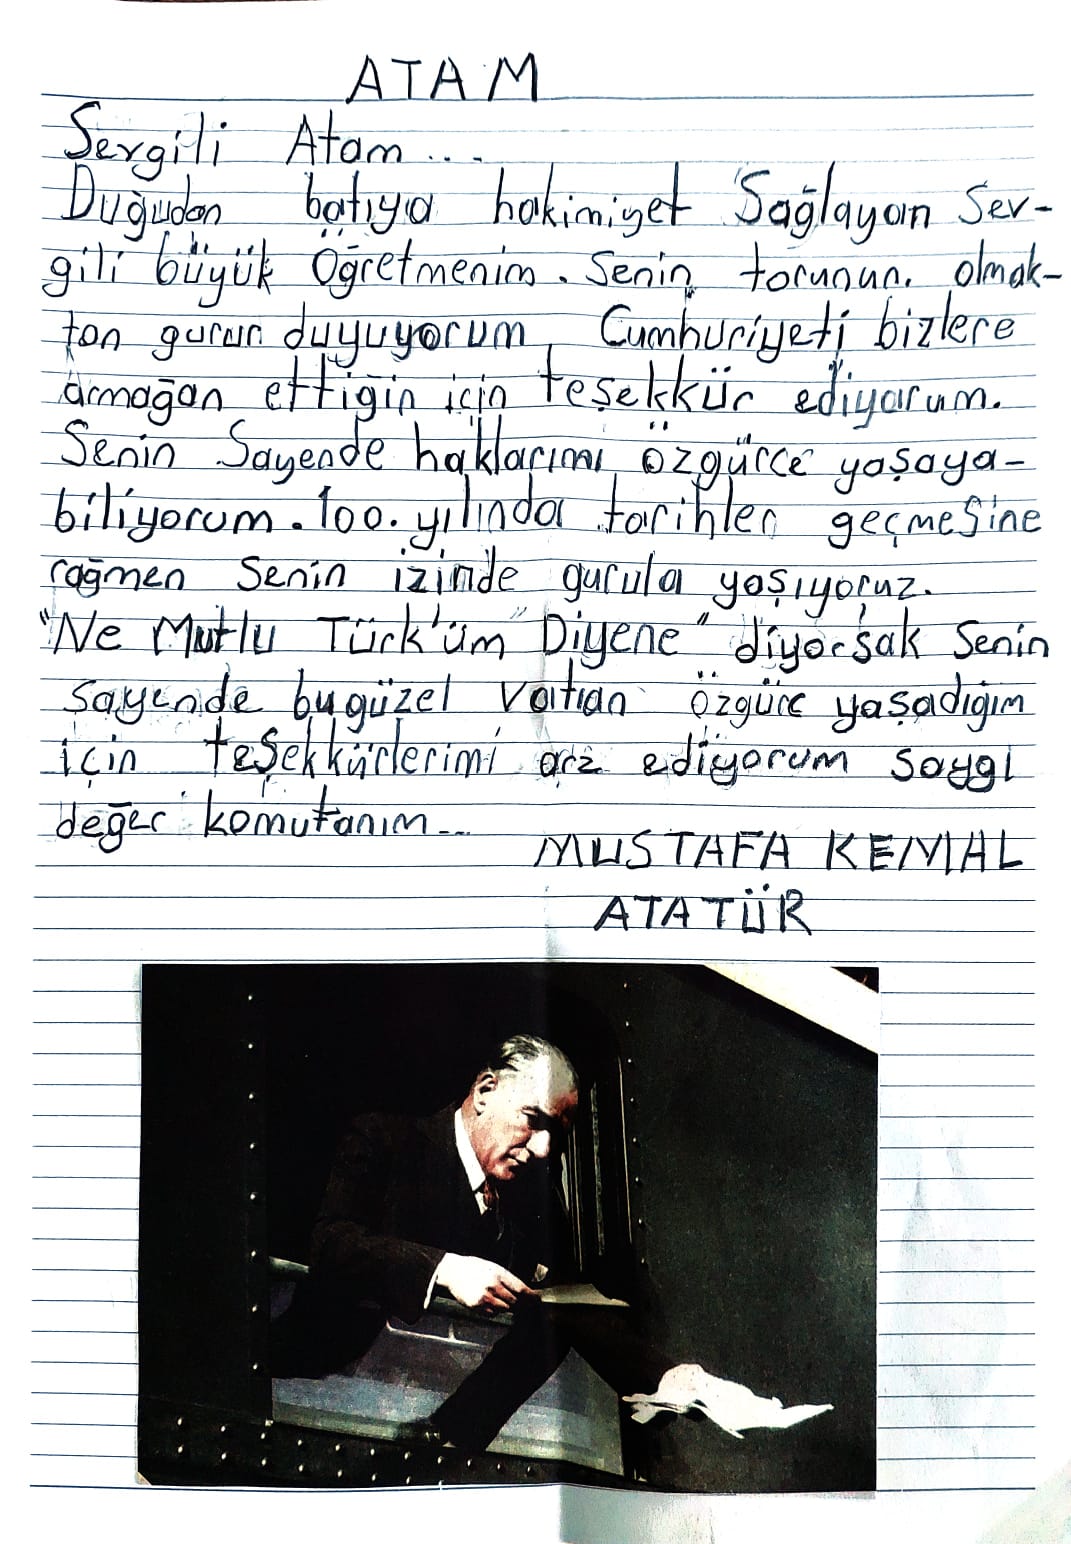 ATAM
Sevgili Atam...
Duğudan batıya hakimiyet Sağlayan Sev-
gili büyük Öğretmenim. Senin torunun olmak-
tan gurur duyuyorum. Cumhuriyeti bizlere
armağan ettiğin için teşekkür ediyorum.
Senin Sayende haklarımı özgürce yaşaya-
biliyorum. 100. yılında tarihler geçmeSine
rağmen Senin izinde gurula yaşıyoruz.
"Ne Mutlu Türk'üm" Diyene" diyorsak Senin
sayende bu güzel Vatan özgürc yaşadığım
için teşekkürlerimi arz ediyorum Saygı
değer komutanım...
MUSTAFA KEMAL
ATATÜR